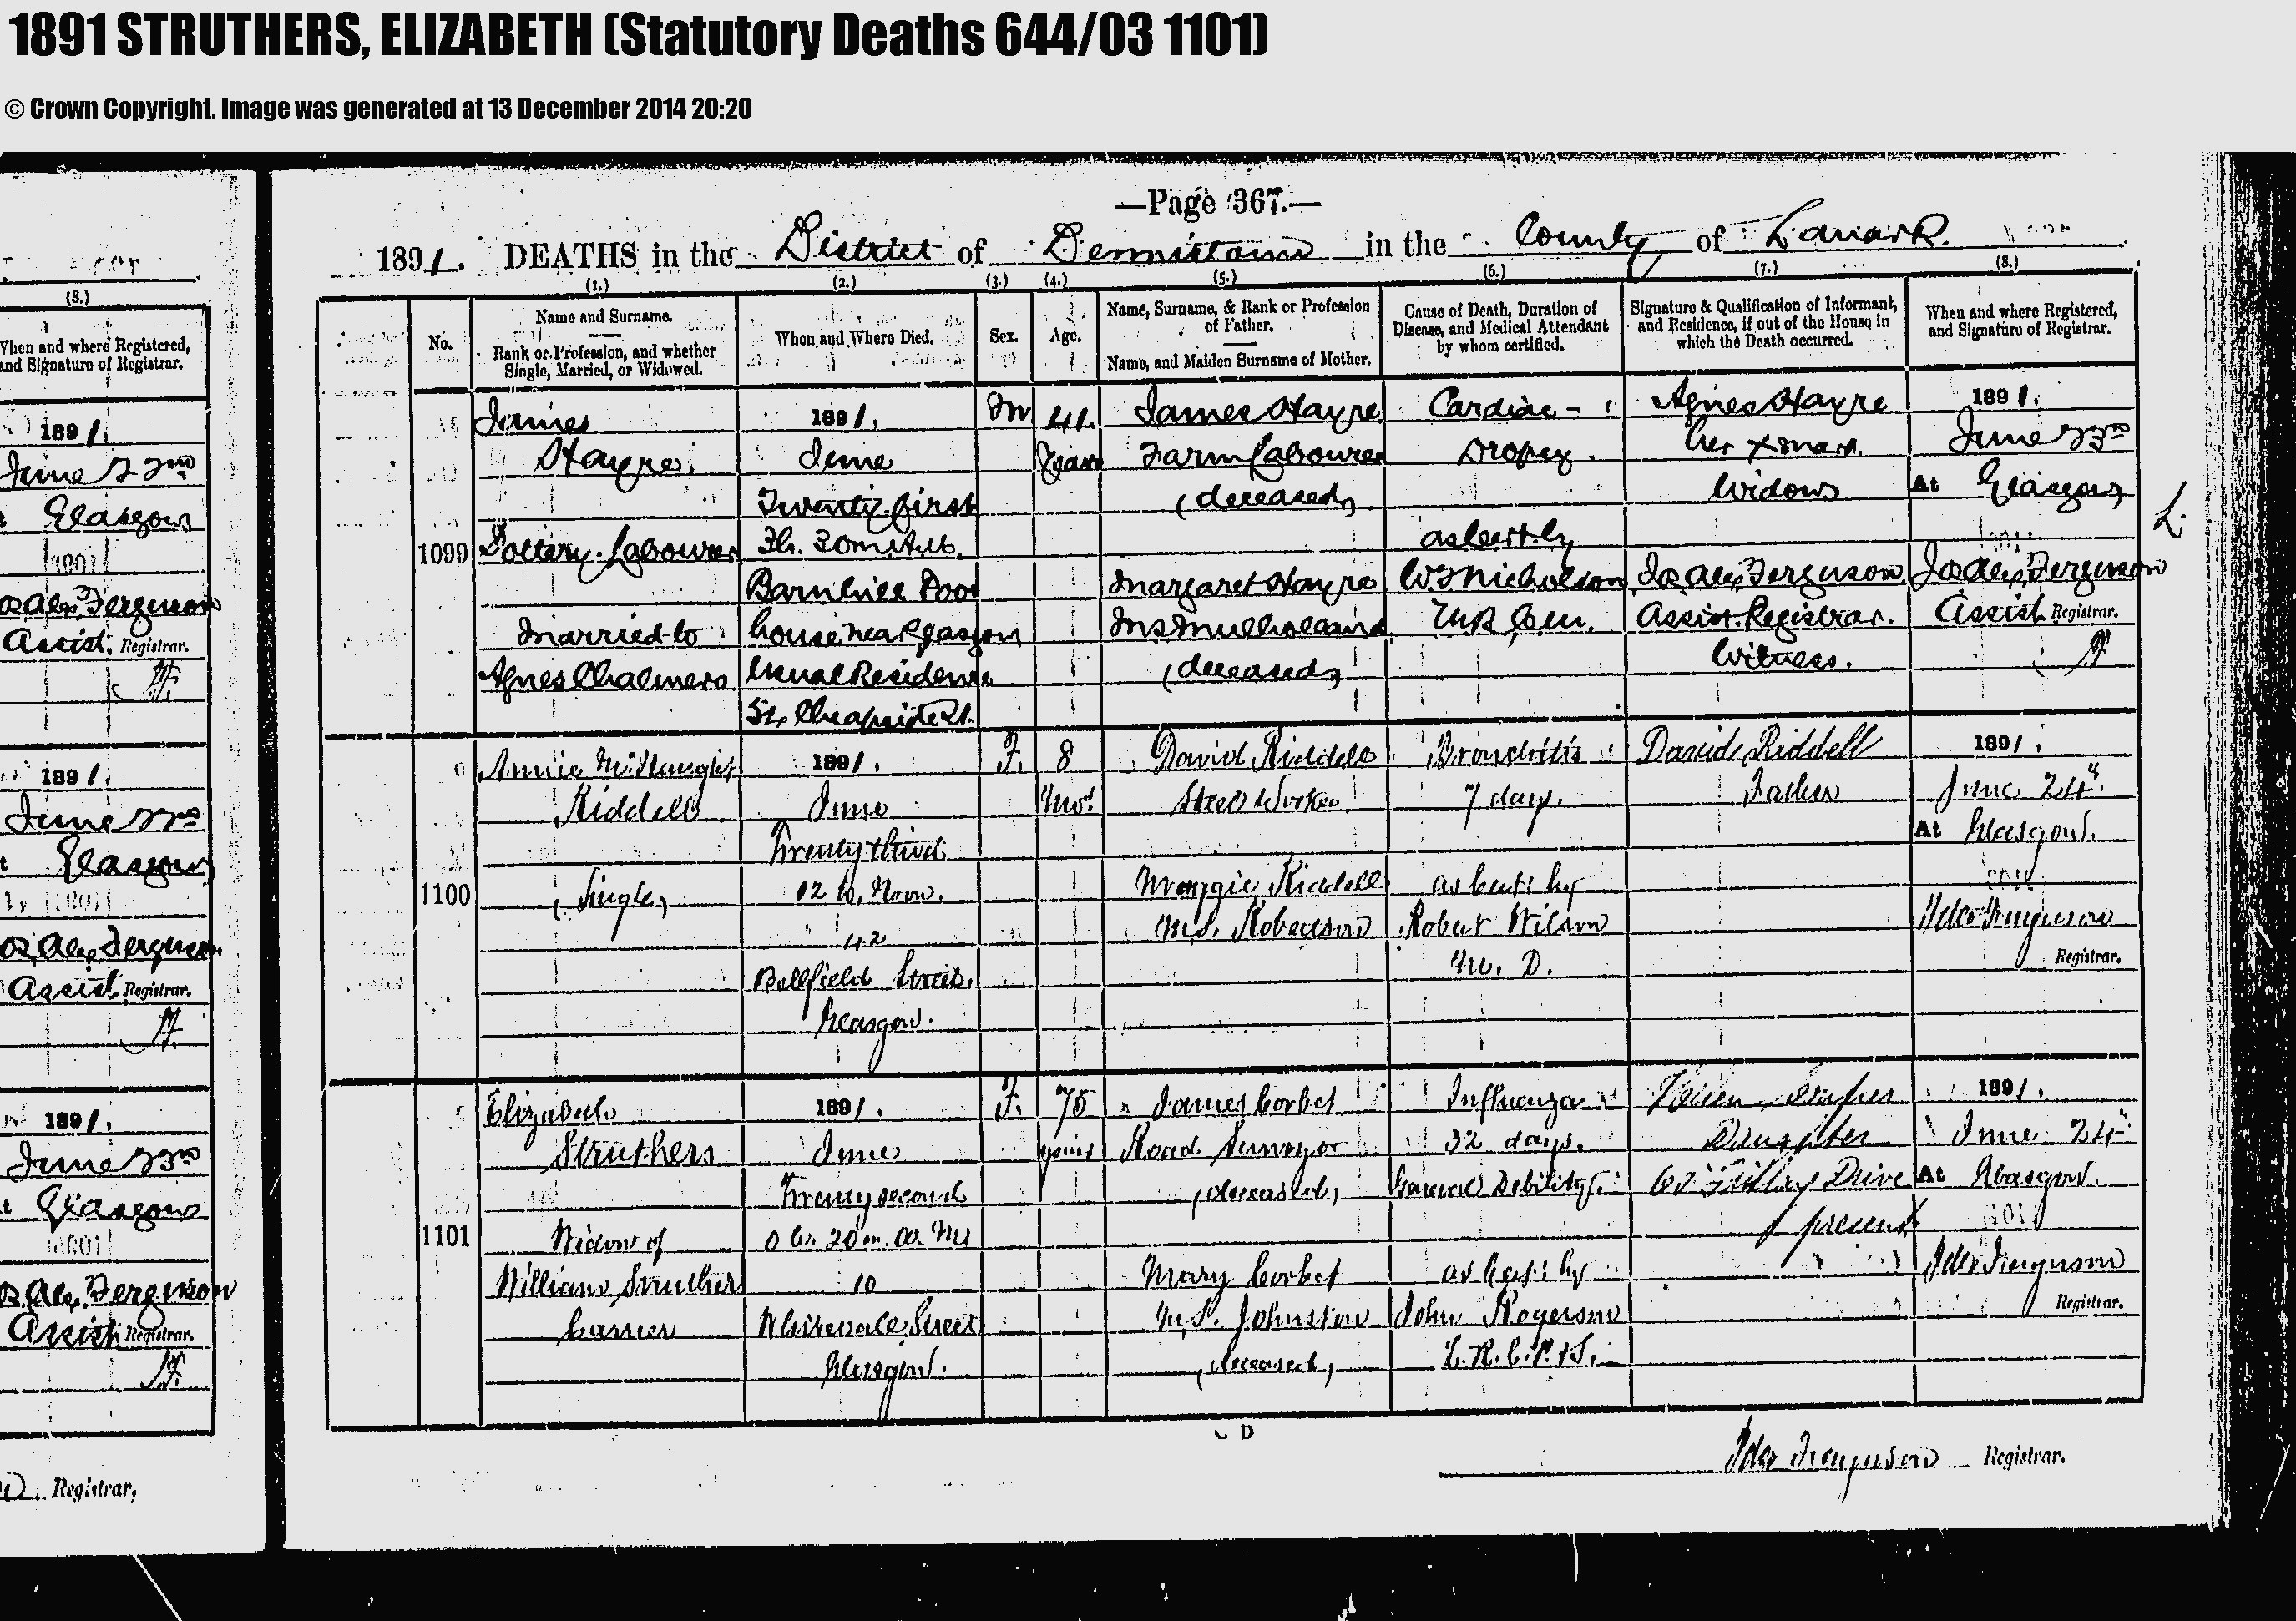 1891 STRUTHERS, ELIZABETH (Statutory Deaths 644/03 1101)
© Crown Copyright. Image was generated at 13 December 2014 20:20
—Page 367.—
1891. DEATHS in the District of Dennistoun in the County of Lanark.
(8.)
When and where Registered,
and Signature of Registrar.
1891.
June 22nd
At Glasgow
Jas Alex Ferguson
Assist. Registrar.
1891.
June 22nd
At Glasgow
Jas Alex Ferguson
Assist Registrar.
1891.
June 23rd
At Glasgow
Jas Alex Ferguson
Assist. Registrar.
Registrar.
No.
(1.)
Name and Surname.
Rank or Profession, and whether
Single, Married, or Widowed.
(2.)
When and Where Died.
(3.)
Sex.
(4.)
Age.
(5.)
Name, Surname, & Rank or Profession
of Father.
Name, and Maiden Surname of Mother.
(6.)
Cause of Death, Duration of
Disease, and Medical Attendant
by whom certified.
(7.)
Signature & Qualification of Informant,
and Residence, if out of the House in
which the Death occurred.
(8.)
When and where Registered,
and Signature of Registrar.
1099
James
Stayre
Pottery Labourer
Married to
Agnes Chalmers
1891.
June
Twenty first
3h. 30m A.M.
Barnhill Poor
house near Glasgow
Usual Residence
51, Cheapside St.
M
41.
Years
James Stayre
Farm Labourer
(deceased)
Margaret Stayre
M.S. Mulholland
(deceased)
Cardiac
Dropsy.
as cert. by
Wm Nicholson
M.B. C.M.
Agnes Stayre
her x mark.
Widow
Jas Alex Ferguson
Assist. Registrar.
Witness.
1891.
June 23rd
At Glasgow
Jas Alex Ferguson
Assist Registrar.
L.
1100
Annie McNaught
Riddell
(Single)
1891.
June
Twenty third
12 h. Noon.
42
Bellfield Street,
Glasgow.
F.
8
Mos.
David Riddell
Steel Worker
Maggie Riddell
M.S. Robertson
Bronchitis
7 days.
as cert. by
Robert Wilson
M. D.
David Riddell
Father
1891.
June 24th
At Glasgow.
Ferguson
Registrar.
1101
Elizabeth
Struthers
Widow of
William Struthers
Carrier
1891.
June
Twenty second
0 h. 20 m. A. M.
10
Whitevale Street
Glasgow.
F.
75
years
James Corbet
Road Surveyor
(deceased)
Mary Corbet
M.S. Johnston
(deceased)
Influenza
32 days.
General Debility.
as cert. by
John Rogerson
L.R.C.P. & S.
Daughter
Drive
present
1891.
June 24th
At Glasgow.
Ferguson
Registrar.
Ferguson Registrar.